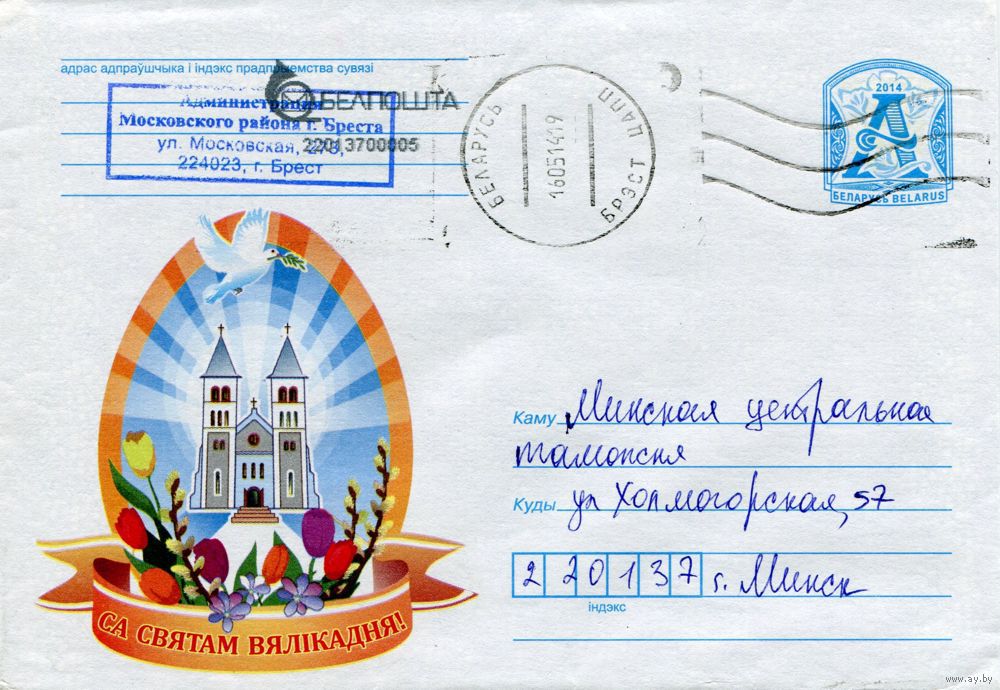 адрас адпраўшчыка і індэкс прадпрыемства сувязі
БЕЛПОШТА
Администрация
Московского района г. Бреста
22013700005
ул. Московская, 278,
224023, г. Брест
БЕЛАРУСЬ
16051419
БРЭСТ
ЦАПП
2014
А
БЕЛАРУСЬ BELARUS
Каму Минская центральная
таможня
Куды ул Холмогорская, 57
220137 г. Минск
індэкс
СА СВЯТАМ ВЯЛІКАДНЯ!
www.ay.by